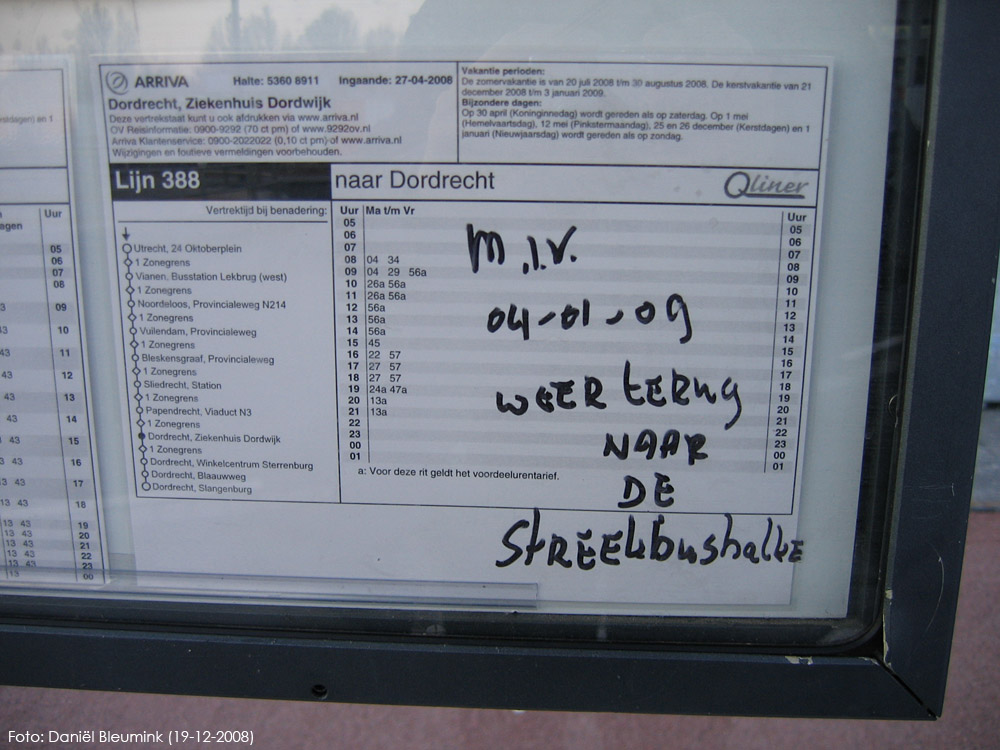 ARRIVA Halte: 5360 8911 Ingaande: 27-04-2008
Dordrecht, Ziekenhuis Dordwijk
Deze vertrekstaat kunt u ook afdrukken via www.arriva.nl
OV Reisinformatie: 0900-9292 (70 ct pm) of www.9292ov.nl
Arriva Klantenservice: 0900-2022022 (0,10 ct pm) of www.arriva.nl
Wijzigingen en foutieve vermeldingen voorbehouden.
Vakantie perioden:
De zomervakantie is van 20 juli 2008 t/m 30 augustus 2008. De kerstvakantie van 21
december 2008 t/m 3 januari 2009.
Bijzondere dagen:
Op 30 april (Koninginnedag) wordt gereden als op zaterdag. Op 1 mei
(Hemelvaartsdag), 12 mei (Pinkstermaandag), 25 en 26 december (Kerstdagen) en 1
januari (Nieuwjaarsdag) wordt gereden als op zondag.
Lijn 388 naar Dordrecht Qliner
Vertrektijd bij benadering:
Utrecht, 24 Oktoberplein
1 Zonegrens
Vianen, Busstation Lekbrug (west)
1 Zonegrens
Noordeloos, Provincialeweg N214
1 Zonegrens
Vuilendam, Provincialeweg
1 Zonegrens
Bleskensgraaf, Provincialeweg
1 Zonegrens
Sliedrecht, Station
1 Zonegrens
Papendrecht, Viaduct N3
1 Zonegrens
Dordrecht, Ziekenhuis Dordwijk
1 Zonegrens
Dordrecht, Winkelcentrum Sterrenburg
Dordrecht, Blaauwweg
Dordrecht, Slangenburg
Uur Ma t/m Vr Uur
05 05
06 06
07 07
08 04 34 08
09 04 29 56a 09
10 26a 56a 10
11 26a 56a 11
12 56a 12
13 56a 13
14 56a 14
15 45 15
16 22 57 16
17 27 57 17
18 27 57 18
19 24a 47a 19
20 13a 20
21 13a 21
22 22
23 23
00 00
01 01
a: Voor deze rit geldt het voordeelurentarief.
M.I.V.
04-01-09
WEER TERUG
NAAR
DE
StREEkbushalte
Uur
05
06
07
08
09
43 10
43 11
43 12
43 13
43 14
43 15
3 43 16
3 43 17
13 43 18
13 43 19
13 43 20
13 43 21
13 43 22
13 43 23
13 00
Foto: Daniël Bleumink (19-12-2008)